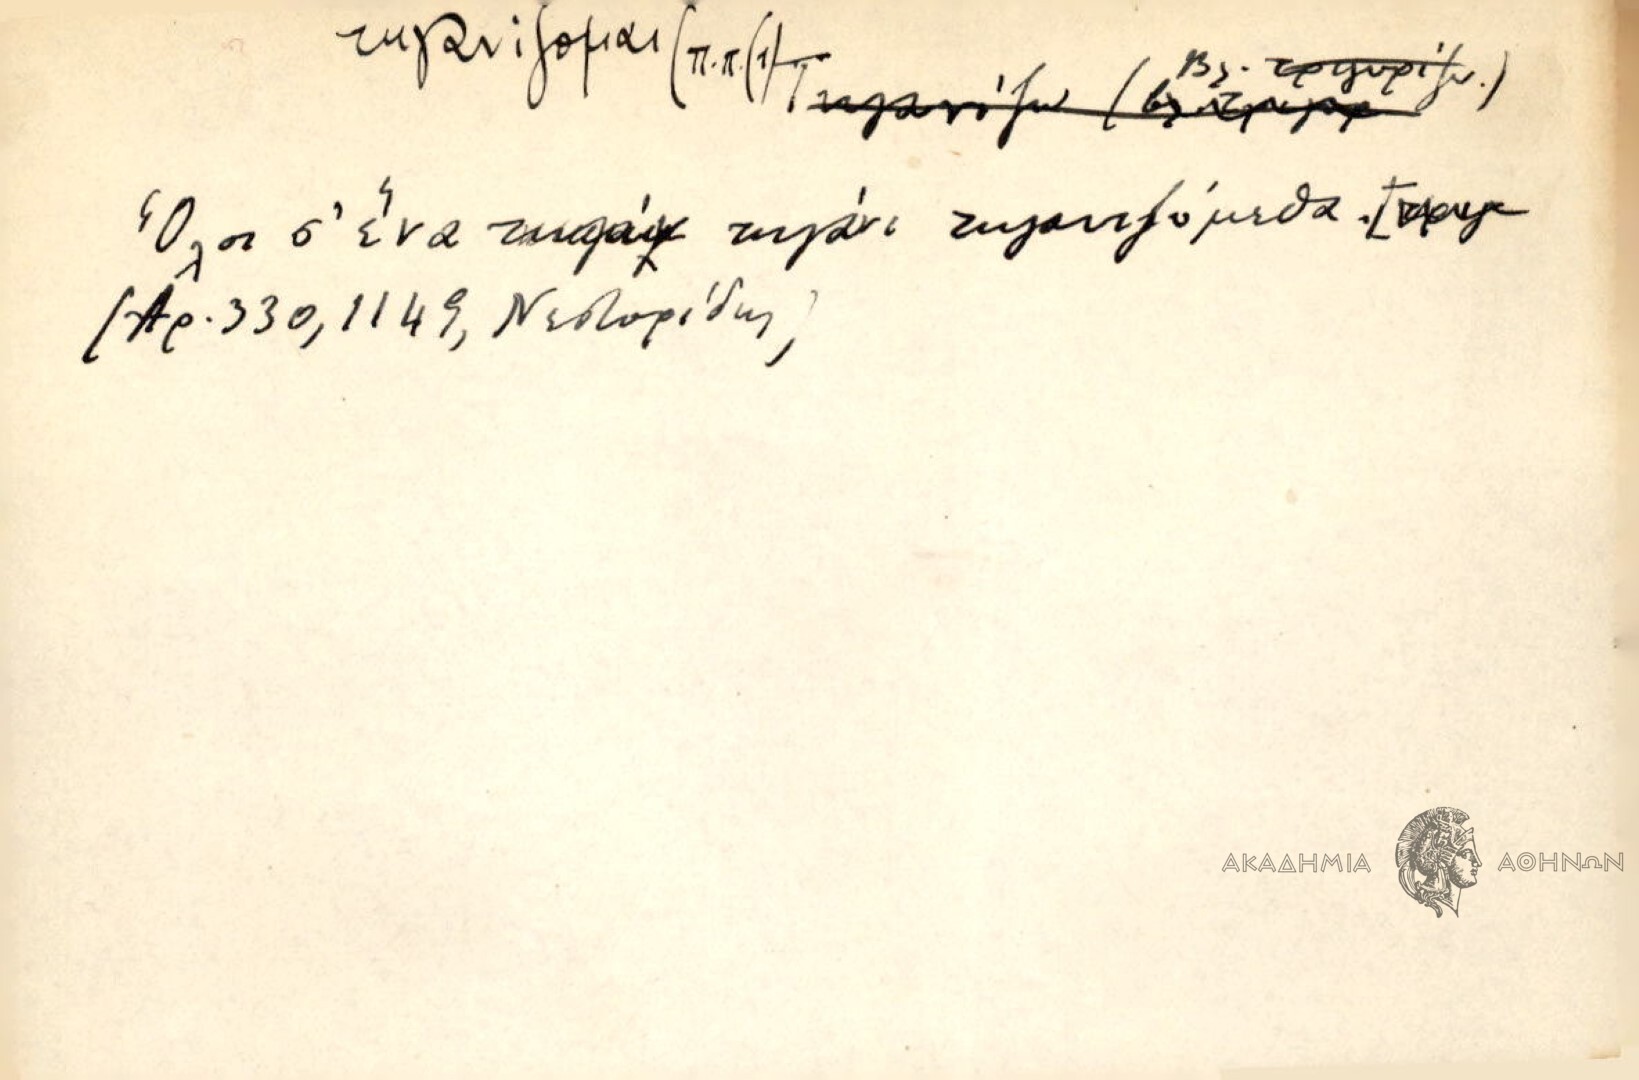 τηγανίζομαι (π.π.(1) Τηγανίζω (Βλ. τριγυρίζω.)
Ὅλοι σ' ἕνα τηγάνι τηγανιζόμεθα.
(Αρ. 330, 1149, Νεστορίδης)
ΑΚΑΔΗΜΙΑ ΑΘΗΝΩΝ